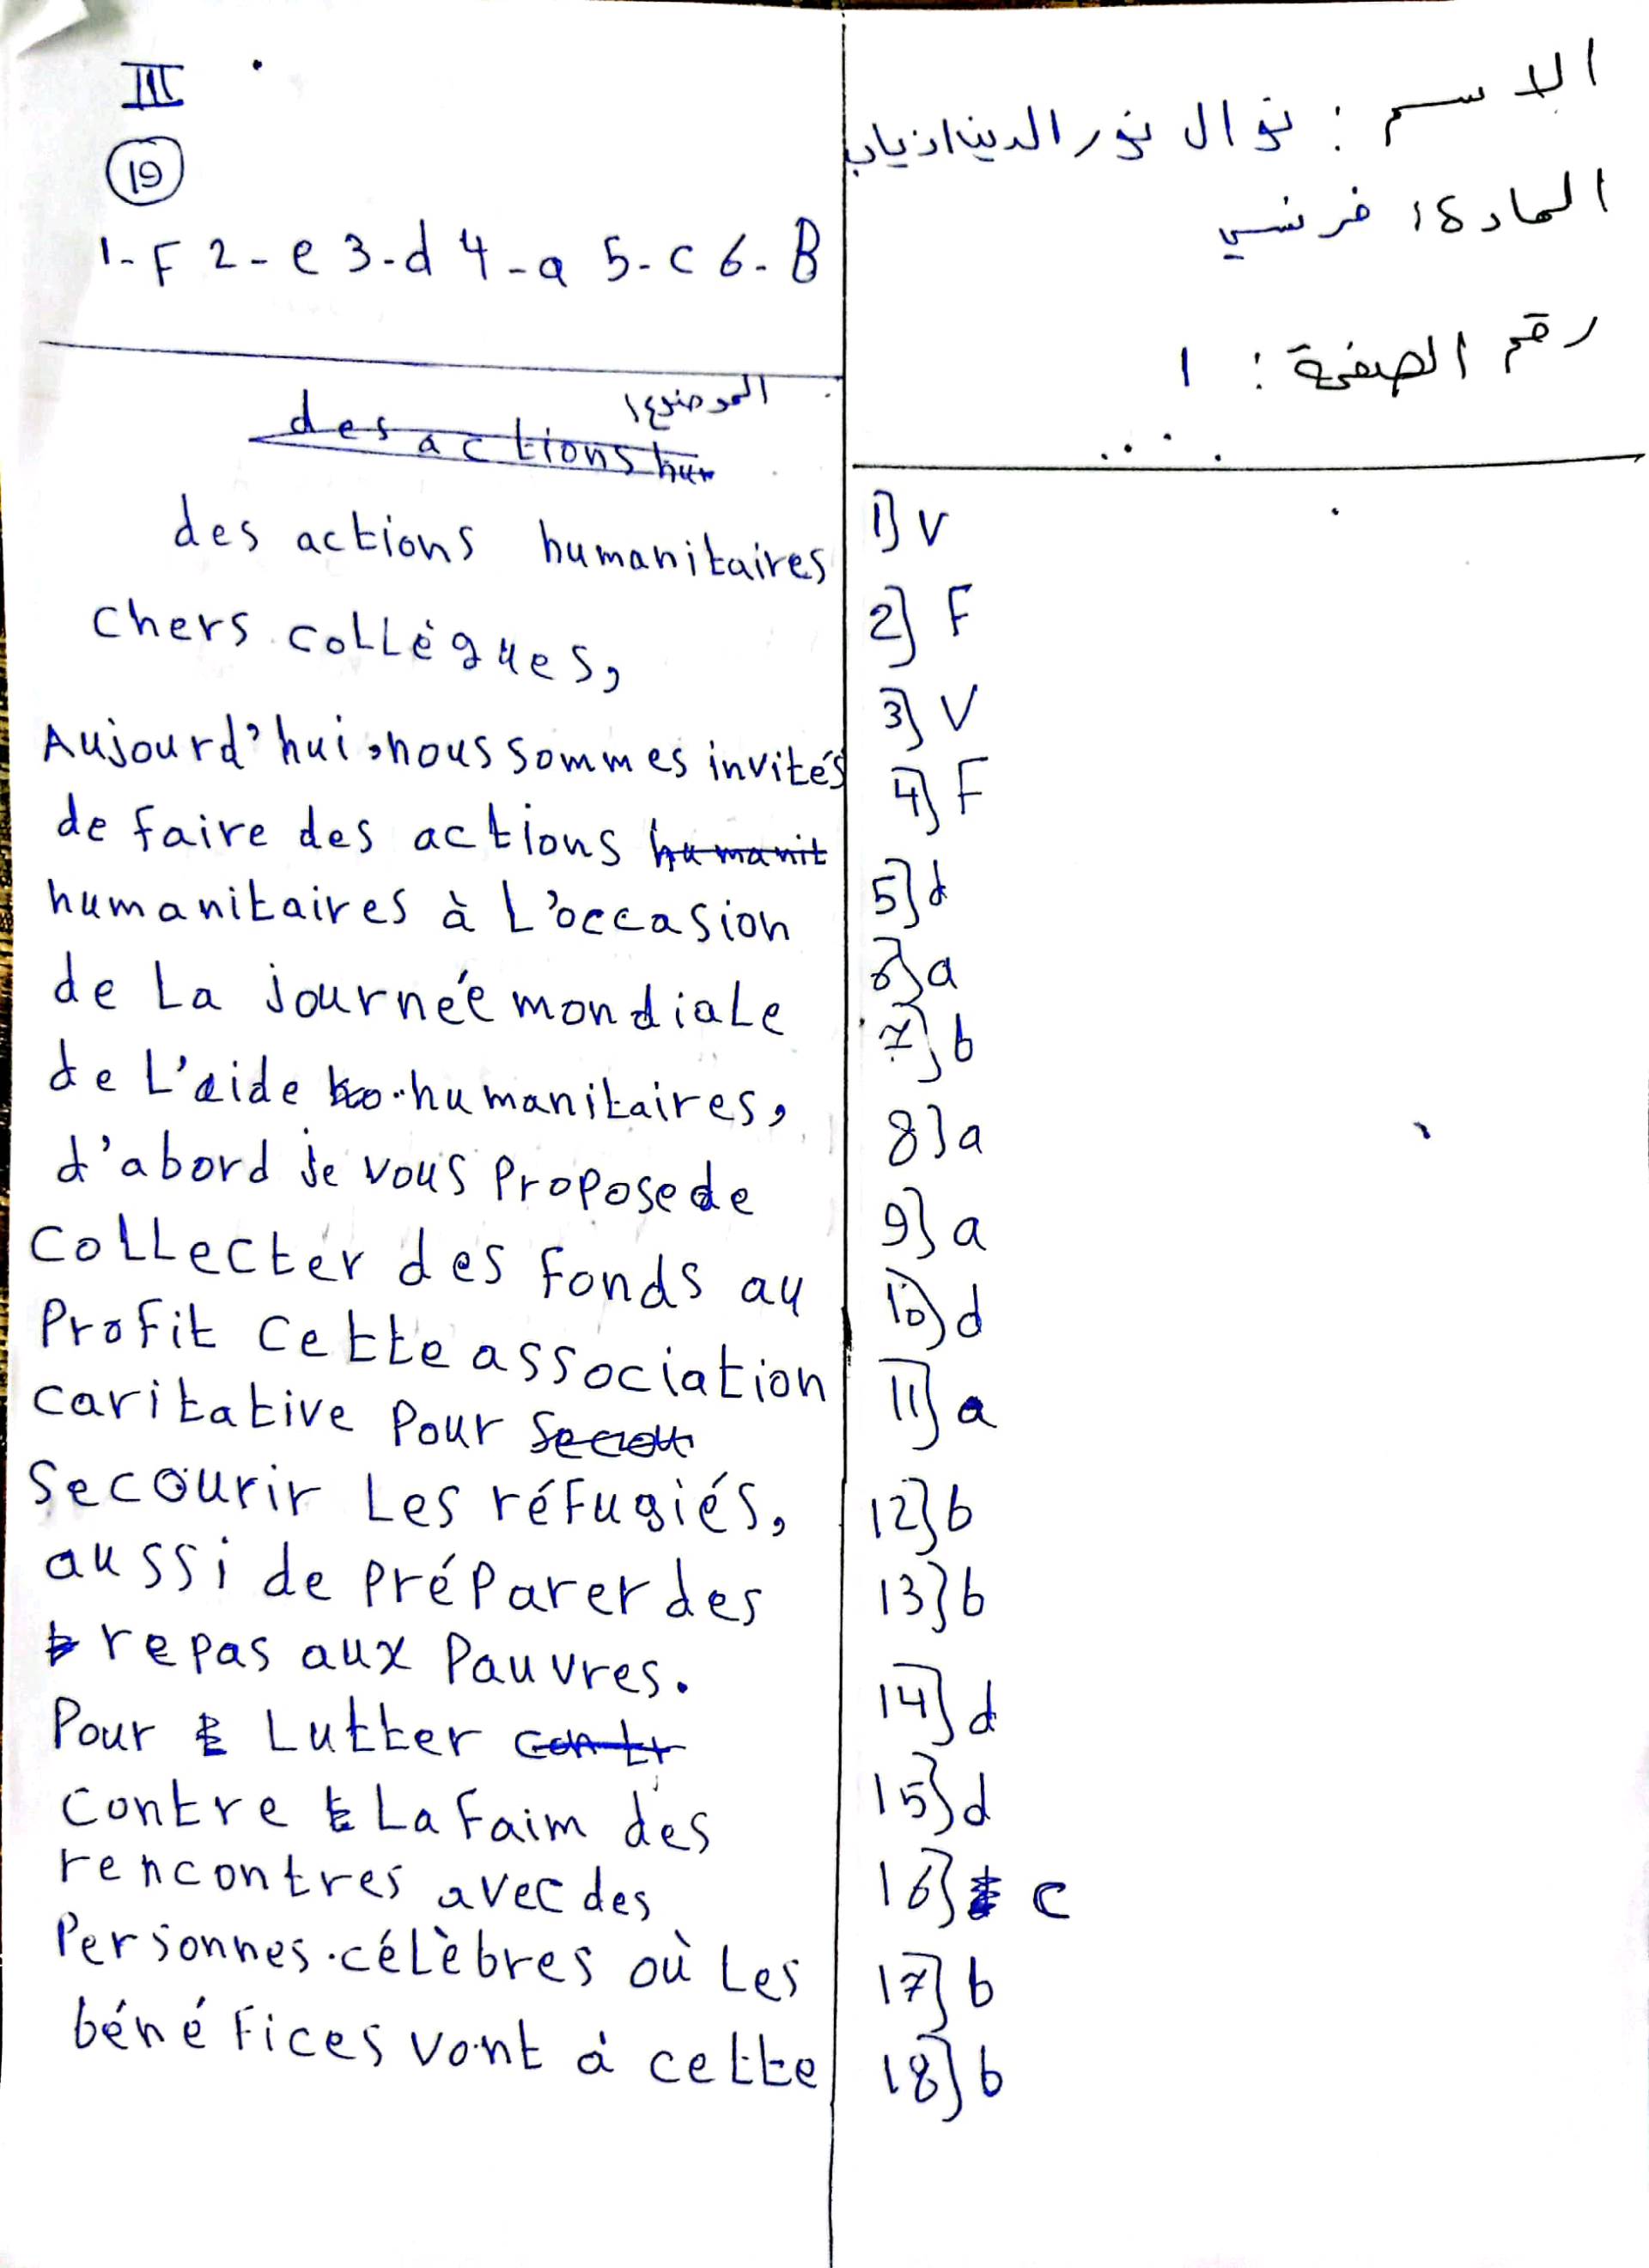 الاسم : نوال نور الدين
المادة: فرنسي
رقم الصفحة : ١
1) V
2) F
3) V
4) F
5) d
6) a
7) b
8) a
9) a
10) d
11) a
12) b
13) b
14) d
15) d
16) c
17) b
18) b
III
19
1-F 2-e 3-d 4-a 5-c 6-B
الموضوع١
des actions hum
des actions humanitaires
chers collègues,
Aujourd'hui, nous sommes invités
de faire des actions humanit
humanitaires à L'occasion
de La journée mondiale
de L'aide humanitaires,
d'abord je vous Propose de
collecter des fonds au
Profit cette association
caritative Pour
Secourir Les réfugiés,
aussi de préparer des
repas aux Pauvres.
Pour Lutter contr
contre La Faim des
rencontres avec des
Personnes célèbres où Les
bénéfices vont à cette